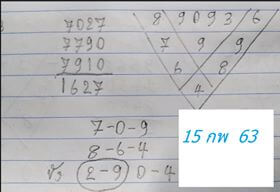 7027
7790
7910
1627
8 9 0 9 3 6
7 9 9
6 8
4
7-0-9
8-6-4
2-9 0-4
15 กพ 63